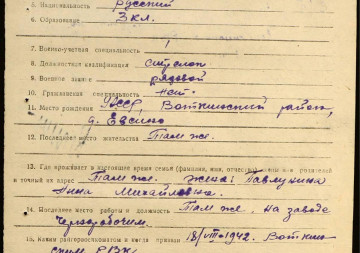 5. Национальность русский
6. Образование 3 кл.
7. Военно-учетная специальность
8. Должностная квалификация стрелок
9. Военное звание рядовой
10. Гражданская специальность нет.
11. Место рождения УАССР, Воткинский район,
д. Евсино
12. Последнее место жительства Там же.
13. Где проживает в настоящее время семья (фамилия, имя, отчество) жены или родителей
и точный их адрес Там же. жена: Павлунина
Анна Михайловна.
14. Последнее место работы и должность Там же. на заводе
Чернорабочим.
15. Каким райгорвоенкоматом и когда призван 18/VIII-1942. Воткин-
ским РВК